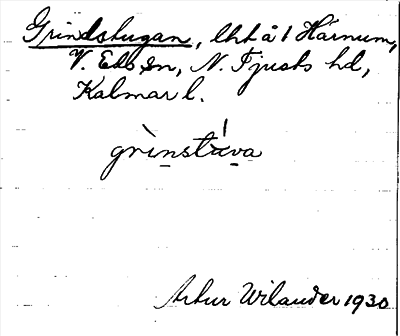 Grindstugan, lht å 1 Härnum,
V. Eds sn, N. Tjusts hd,
Kalmar l.
grìnstúva
Artur Wilander 1930